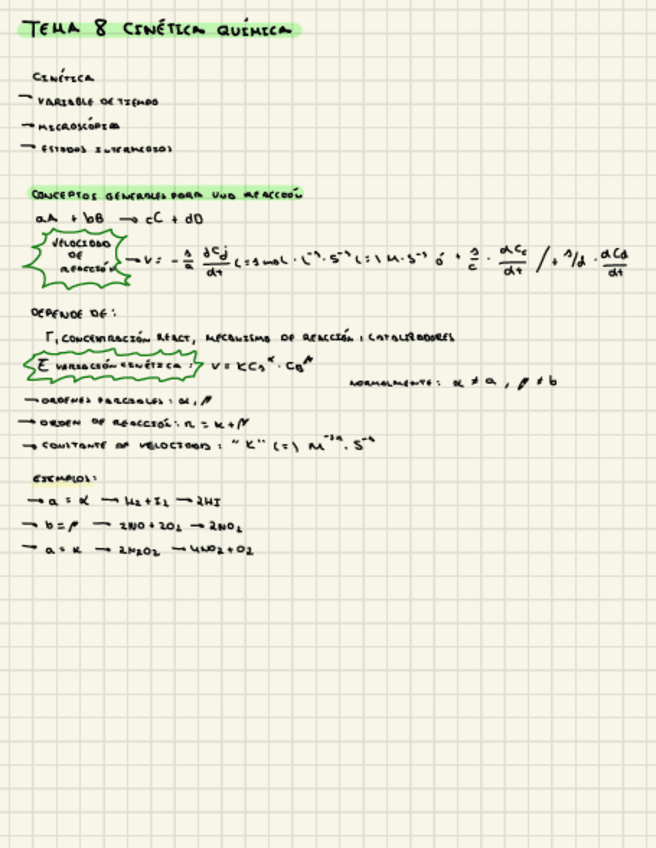 TEMA 8 CINÉTICA QUÍMICA
CINÉTICA
→ VARIABLE DE TIEMPO
→ MICROSCÓPICA
→ ESTADOS INTERMEDIOS
CONCEPTOS GENERALES PARA UNA REACCIÓN
aA + bB → cC + dD
VELOCIDAD DE REACCIÓN → v = - 1/a dCj/dt (=) mol · L⁻¹ · s⁻¹ (=) M · s⁻¹ ó + 1/c · dCc/dt / + 1/d · dCd/dt
DEPENDE DE:
T, CONCENTRACIÓN REACT, MECANISMO DE REACCIÓN, CATALIZADORES
E VARIACIÓN CINÉTICA: v = KCA^α · CB^β
NORMALMENTE: α ≠ a, β ≠ b
→ ORDENES PARCIALES: α, β
→ ORDEN DE REACCIÓN: n = α + β
→ CONSTANTE DE VELOCIDAD: "K" (=) · S⁻¹
EJEMPLOS:
→ a = α → H2 + I2 → 2HI
→ b = β → 2NO + 2O2 → 2NO2
→ a = α → 2N2O2 → 4NO2 + O2